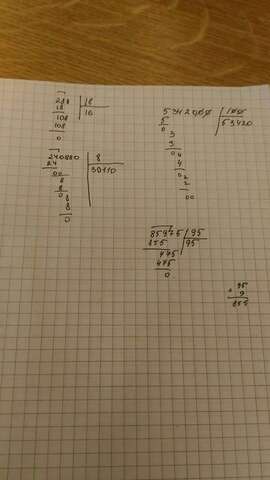 288 | 18
18 | 16
108
108
0
240880 | 8
24 | 30110
00
8
8
0
8
8
0
5342000 | 100
5 | 53420
0
3
3
04
4
02
2
00
85975 | 95
855 | 95
475
475
0
× 95
9
855